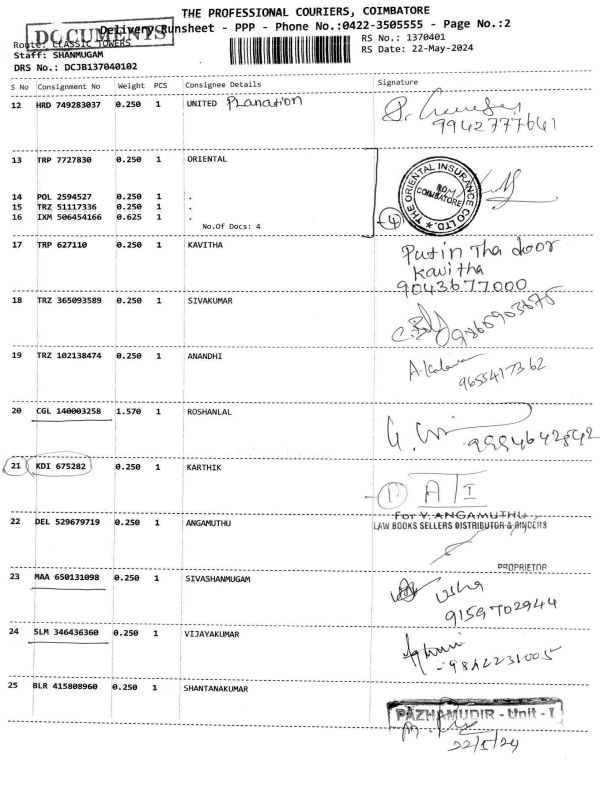 THE PROFESSIONAL COURIERS, COIMBATORE
DOCUMENTS
Delivery Runsheet - PPP - Phone No.:0422-3505555 - Page No.:2
Route: CLASSIC TOWERS
RS No.: 1370401
Staff: SHANMUGAM
RS Date: 22-May-2024
DRS No.: DCJB137040102
S No Consignment No Weight PCS Consignee Details Signature
12 HRD 749283037 0.250 1 UNITED Planation
9942777641
13 TRP 7727830 0.250 1 ORIENTAL
THE ORIENTAL INSURANCE CO LTD. ★
COIMBATORE
14 POL 2594527 0.250 1 .
15 TRZ 51117336 0.250 1 .
16 IXM 506454166 0.625 1 .
No.Of Docs: 4
4
17 TRP 627110 0.250 1 KAVITHA
Putin Tha door
Kavitha
9043677000
18 TRZ 365093589 0.250 1 SIVAKUMAR
9865903675
19 TRZ 102138474 0.250 1 ANANDHI
9655417362
20 CGL 140003258 1.570 1 ROSHANLAL
9994642842
21 KDI 675282 0.250 1 KARTHIK
22 DEL 529679719 0.250 1 ANGAMUTHU
For V. ANGAMUTHU
LAW BOOKS SELLERS DISTRIBUTOR & BINDERS
PROPRIETOR
23 MAA 650131098 0.250 1 SIVASHANMUGAM
usha
9159702944
24 SLM 346436360 0.250 1 VIJAYAKUMAR
25 BLR 415808960 0.250 1 SHANTANAKUMAR
PAZHAMUDIR - Unit - I
22/5/24